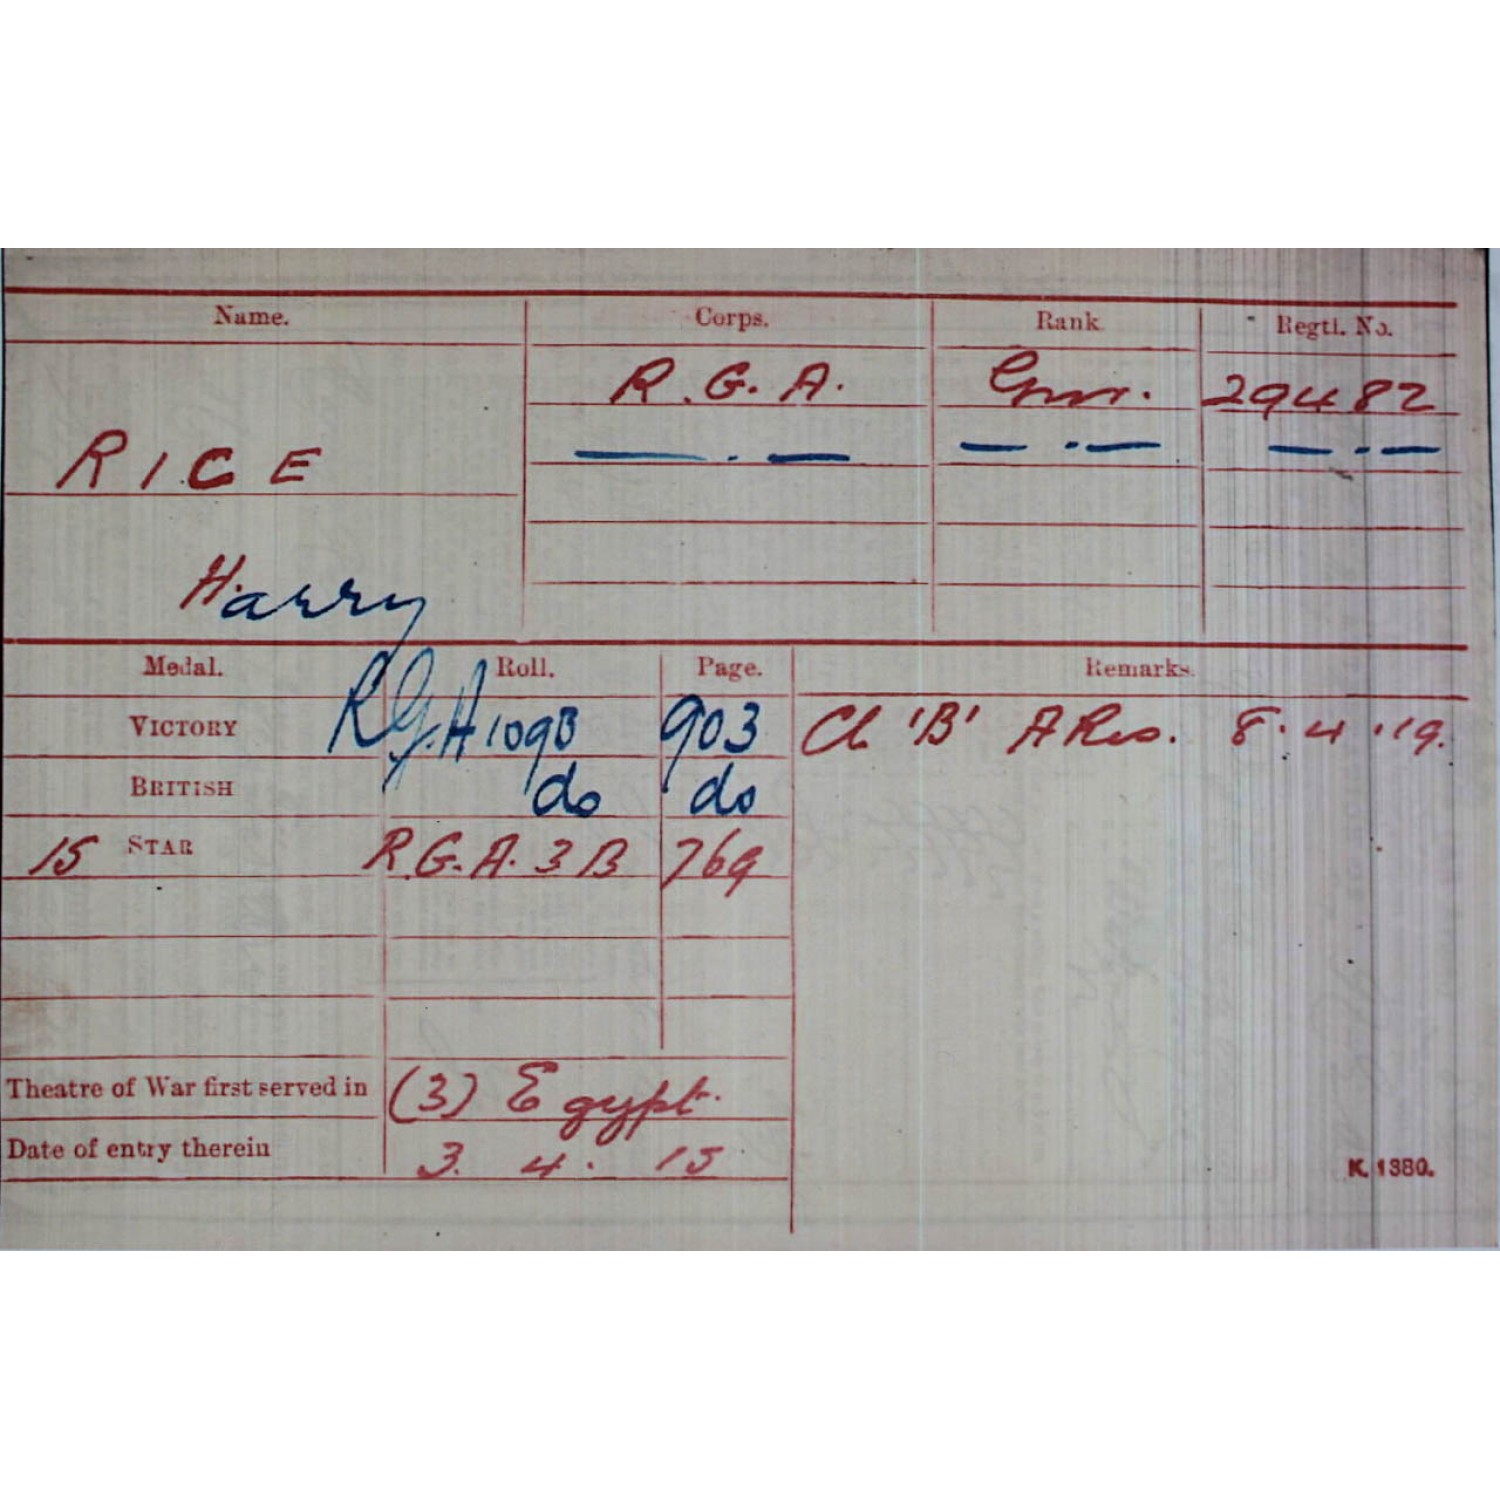 Name. Corps. Rank. Regtl. No.
R.G.A. Gnr. 29482
RICE — . — — . — — . —
Harry
Medal. Roll. Page. Remarks.
VICTORY RGA 109B 903 Cl 'B' A Res. 8.4.19.
BRITISH do do
15 STAR R.G.A. 3B 769
Theatre of War first served in (3) Egypt.
Date of entry therein 3. 4. 15
K. 1380.